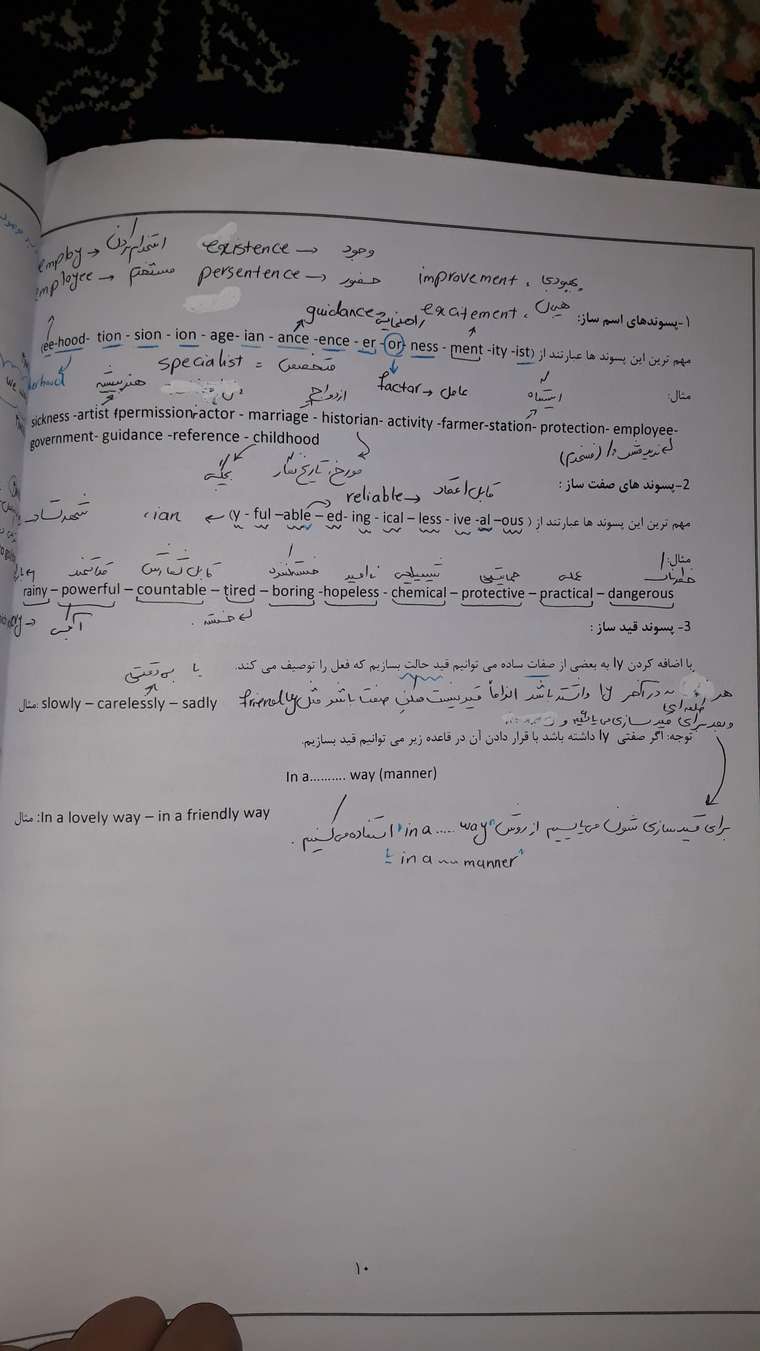 emply → استخدام کردن existence → وجود
employee → مستخدم persentence → حضور improvement ، بهبودی
guidance → راهنمایی excatement ، هیجان
۱-پسوندهای اسم ساز:
مهم ترین این پسوند ها عبارتند از (ee-hood- tion - sion - ion - age- ian - ance -ence - er -or- ness - ment -ity -ist)
specialist = متخصص factor → عامل
مثال:
هنرپیشه ازدواج ایستگاه
sickness -artist -permission-actor - marriage - historian- activity -farmer-station- protection- employee-
government- guidance -reference - childhood
مورخ، تاریخ نگار بچگی
2-پسوندهای صفت ساز :
reliable → قابل اعتماد
مهم ترین این پسوند ها عبارتند از (y - ful –able – ed- ing - ical – less - ive -al –ous)
ian
مثال:
خسته کننده شیمیایی نا امید حمایتی عملی خطرناک
rainy – powerful – countable – tired – boring -hopeless - chemical – protective – practical – dangerous
خسته
3- پسوند قید ساز :
با اضافه کردن ly به بعضی از صفات ساده می توانیم قید حالت بسازیم که فعل را توصیف می کند.
با بی دقتی
مثال: slowly – carelessly – sadly
هر کلمه ای که در آخر ly داشته باشد الزاماً قید نیست ممکن صفت باشد مثل friendly
توجه: اگر صفتی ly داشته باشد با قرار دادن آن در قاعده زیر می توانیم قید بسازیم.
In a.......... way (manner)
مثال: In a lovely way – in a friendly way
برای قید سازی شون می بایسیم از روش "in a ..... way" استفاده می کنیم .
یا in a ... manner"
۱۰